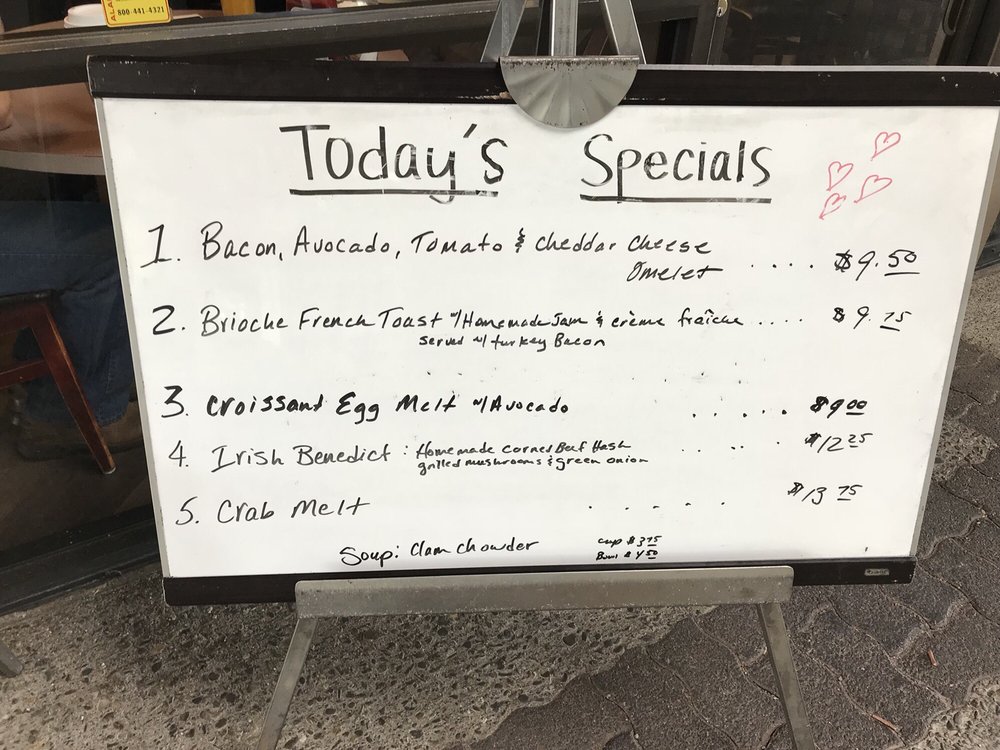 ALA
800-441-4321
Today's Specials
1. Bacon, Avocado, Tomato & cheddar cheese
Omelet .... $9.50
2. Brioche French Toast w/Homemade Jam & crème fraîche .... $9.75
served w/ turkey Bacon
3. Croissant Egg Melt w/Avocado ...... $9 00
4. Irish Benedict : Homemade Corned Beef Hash .... $12 25
grilled mushrooms & green onion
5. Crab Melt ..... $13 75
Soup: Clam Chowder cup $3 75
Bowl $4 50